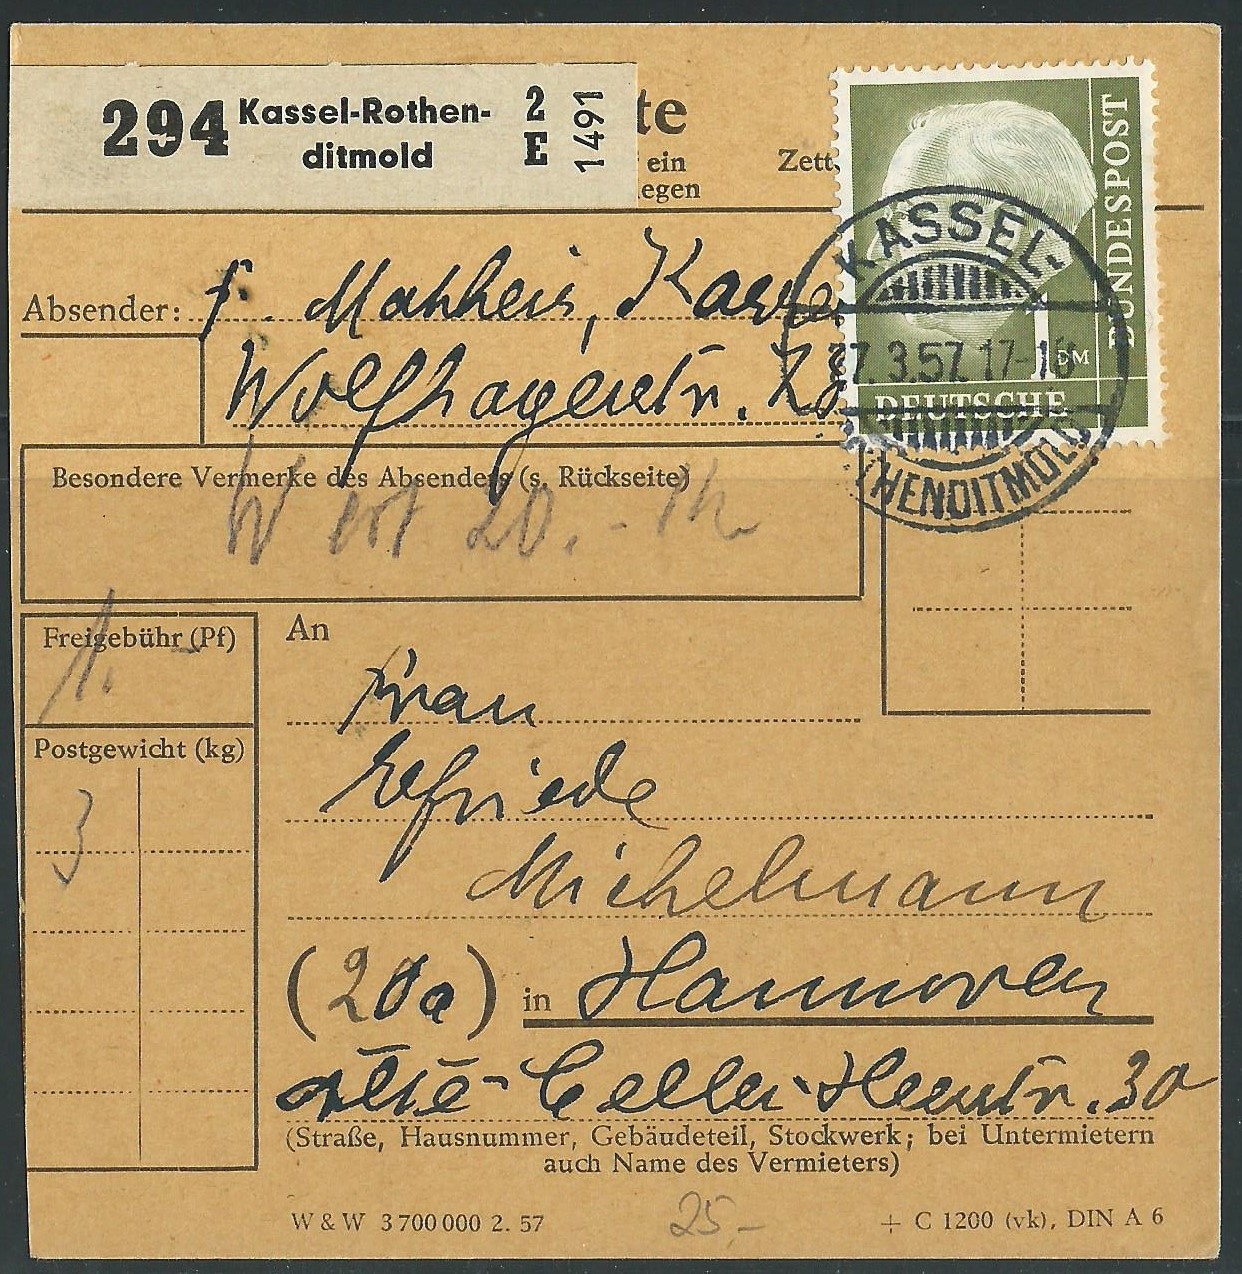 294 Kassel-Rothen-
ditmold
2
E
1491
te
ein
egen
Zett
BUNDESPOST
DEUTSCHE
1 DM
KASSEL
7.3.57.17-18
THENDITMOLD
Absender: f. Mahheis, Kassel
Wolfhagerstr.
Besondere Vermerke des Absenders (s. Rückseite)
Wert 20.-
Freigebühr (Pf)
1.-
Postgewicht (kg)
3
An
Frau
Elfriede
Michelmann
(20a) in Hannover
Alte-Celler-Heerstr. 30
(Straße, Hausnummer, Gebäudeteil, Stockwerk; bei Untermietern
auch Name des Vermieters)
W & W 3 700 000 2. 57
25.-
+ C 1200 (vk), DIN A 6